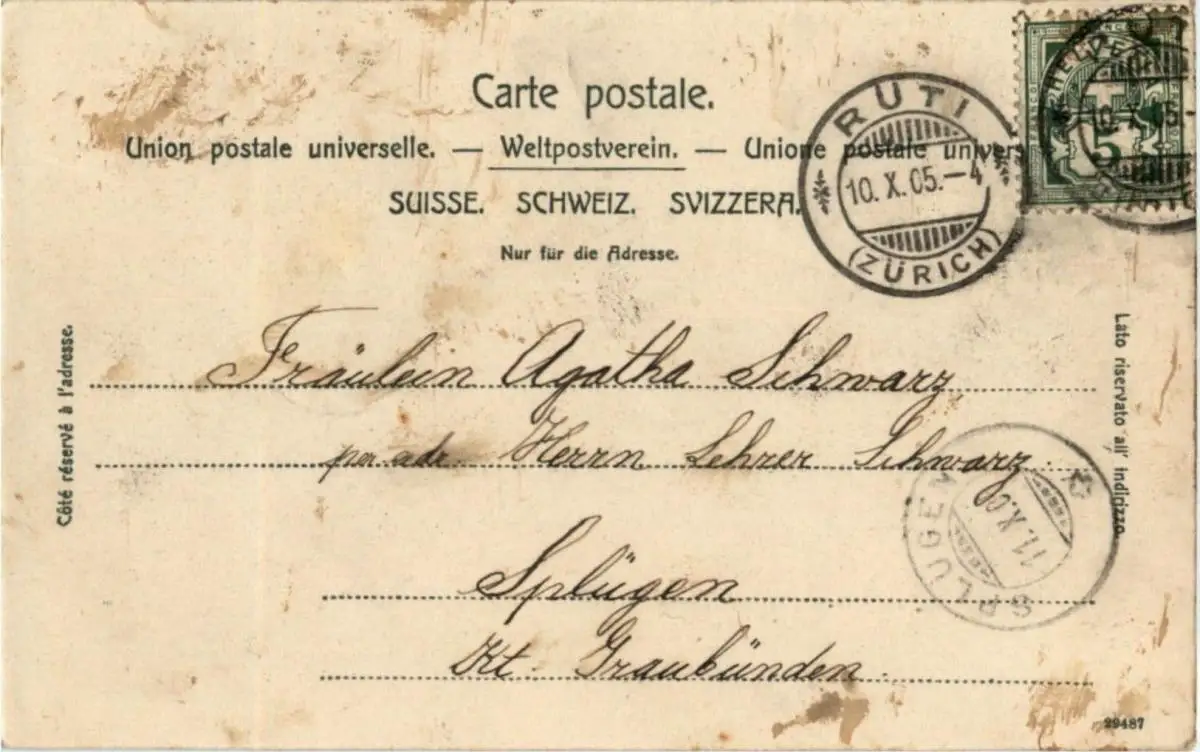 Carte postale.
Union postale universelle. — Weltpostverein. — Unione postale univer
SUISSE. SCHWEIZ. SVIZZERA.
Nur für die Adresse.
RÜTI
10. X. 05.–4
(ZÜRICH)
HELVE
FRANCO
10. X. 05-
5
Côté réservé à l'adresse.
Lato riservato all' indirizzo.
Fräulein Agatha Schwarz
per adr. Herrn Lehrer Schwarz
SPLÜGEN
11. X. 0
Splügen
Kt. Graubünden
29487